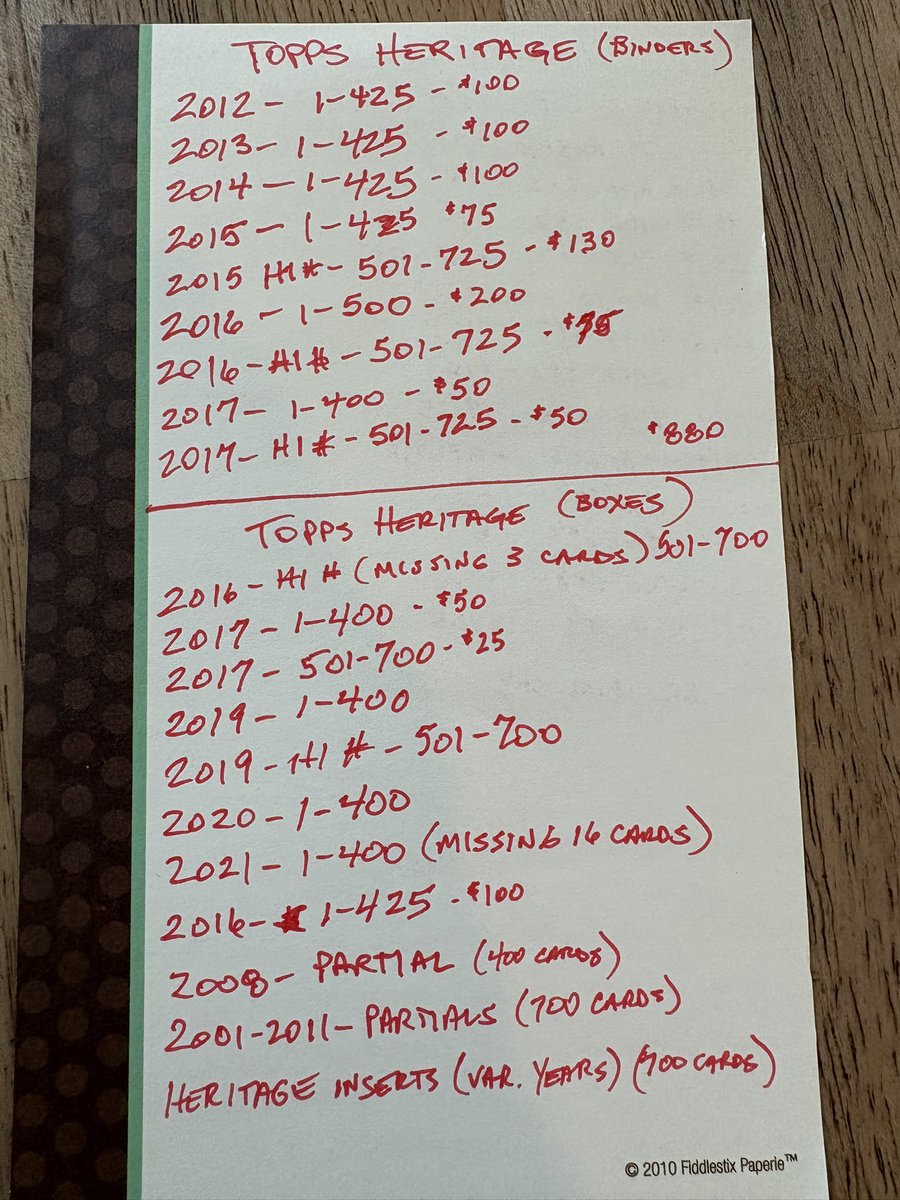 TOPPS HERITAGE (BINDERS)
2012 - 1-425 - $100
2013 - 1-425 - $100
2014 - 1-425 - $100
2015 - 1-425 $75
2015 HI# - 501-725 - $130
2016 - 1-500 - $200
2016 - HI# - 501-725 - $75
2017 - 1-400 - $50
2017 - HI# - 501-725 - $50 $880
TOPPS HERITAGE (BOXES)
2016 - HI# (MISSING 3 CARDS) 501-700
2017 - 1-400 - $50
2017 - 501-700 - $25
2019 - 1-400
2019 - HI# - 501-700
2020 - 1-400
2021 - 1-400 (MISSING 16 CARDS)
2016 - 1-425 - $100
2008 - PARTIAL (400 CARDS)
2001-2011 - PARTIALS (700 CARDS)
HERITAGE INSERTS (VAR. YEARS) (700 CARDS)
© 2010 Fiddlestix Paperie™